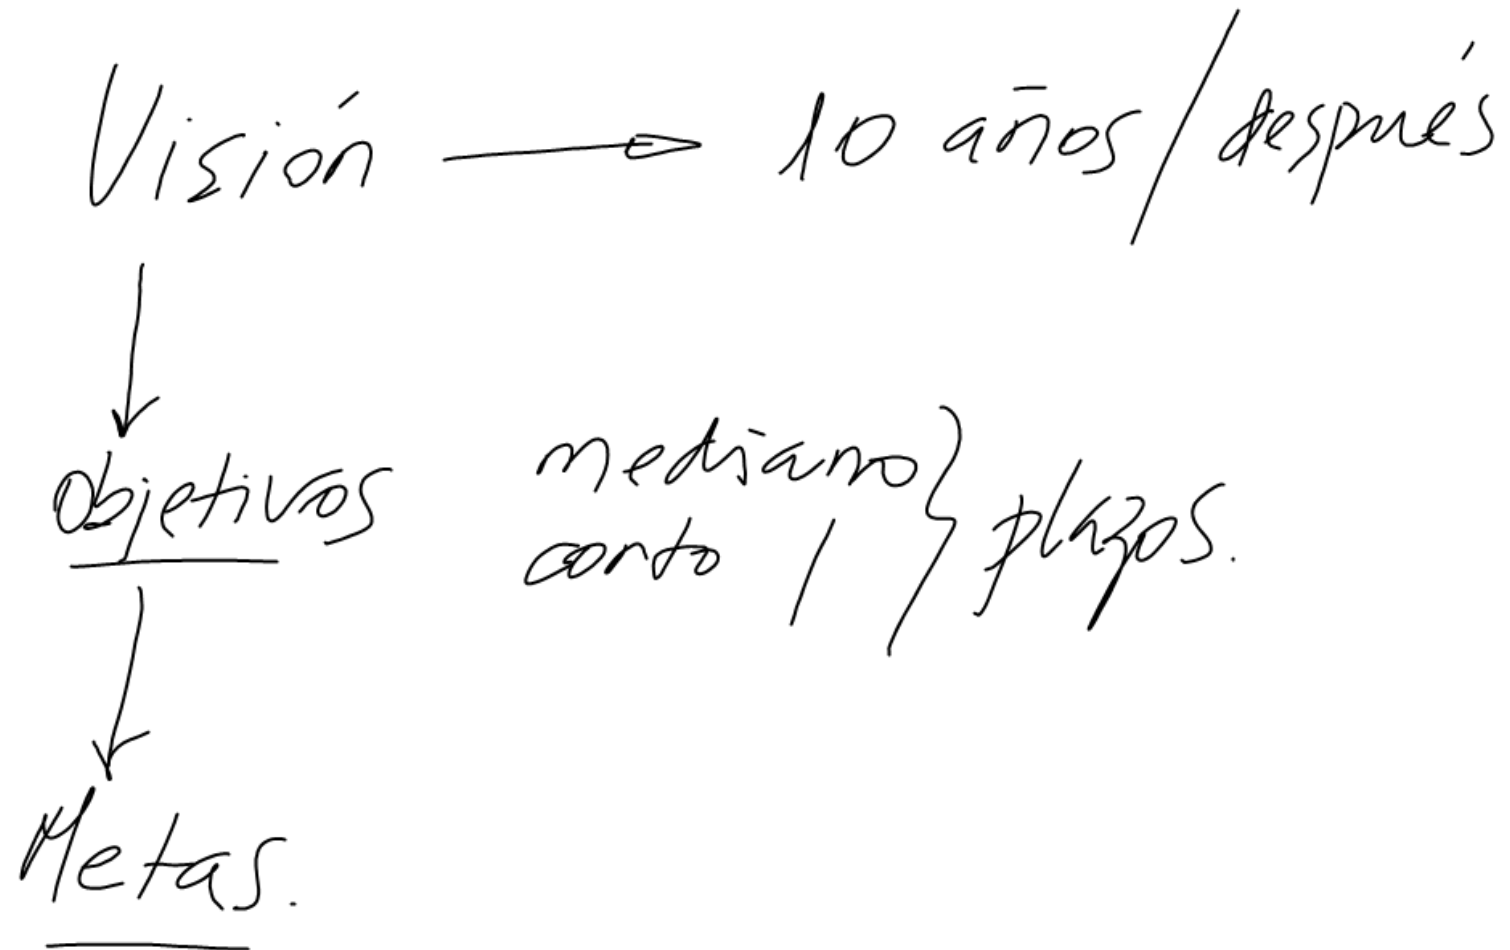 Visión → 10 años / después
objetivos
mediano
corto /
} plazos.
Metas.